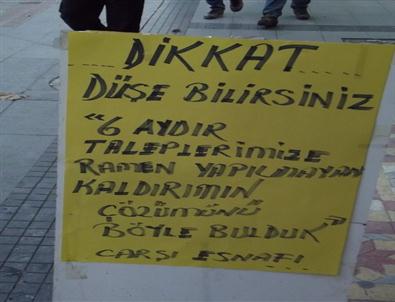 DİKKAT
DÜŞE BİLİRSİNİZ
"6 AYDIR
TALEPLERİMİZE
RAMEN YAPILMAYAN
KALDIRIMIN
ÇÖZÜMÜNÜ
BÖYLE BULDUK"
ÇARŞI ESNAFI